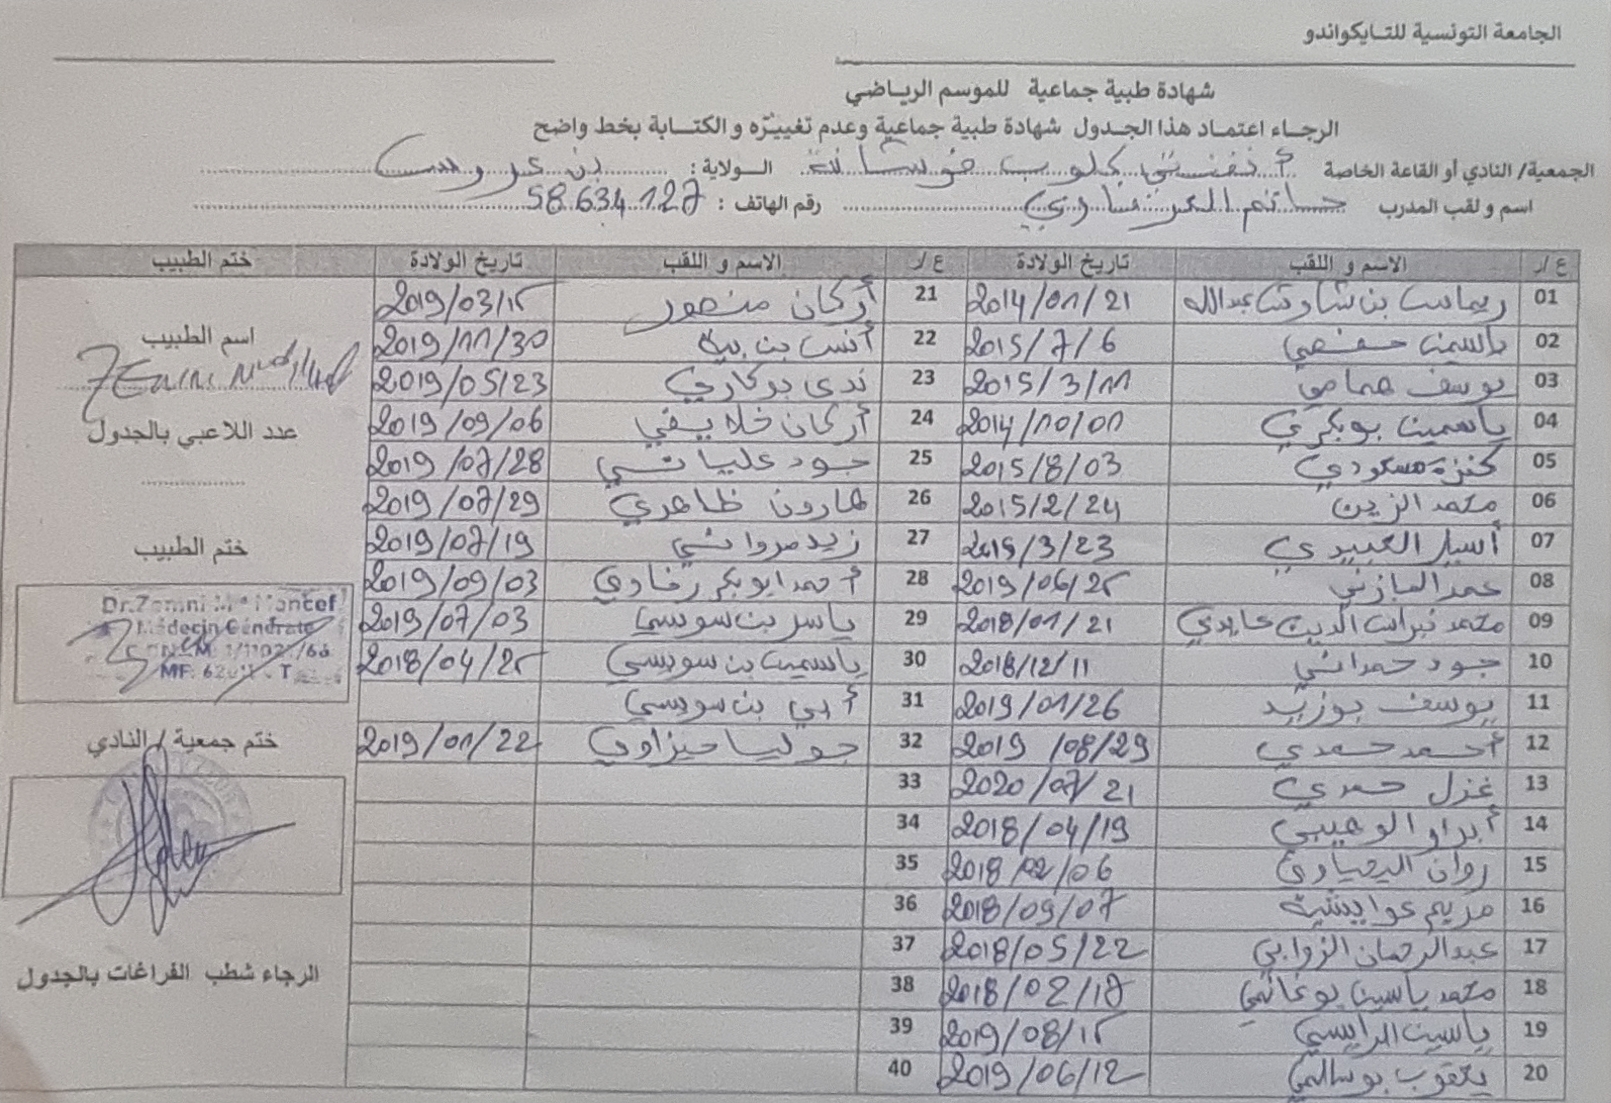 الجامعة التونسية للتايكواندو
شهادة طبية جماعية للموسم الرياضي
الرجاء اعتماد هذا الجدول شهادة طبية جماعية وعدم تغييّره و الكتابة بخط واضح
الجمعية/ النادي أو القاعة الخاصة كلوب فوشانة الولاية: بن عروس
اسم و لقب المدرب حاتم رقم الهاتف : 58.634.127
ع /ر الاسم و اللقب تاريخ الولادة ع /ر الاسم و اللقب تاريخ الولادة ختم الطبيب
01 ريماس بن شاوش عبدالله 2014/01/21 21 أركان منصور 2019/03/15
02 ياسمين حفصي 2015/7/6 22 أنس بن بية 2019/11/30
03 يوسف همامي 2015/3/11 23 ندى بوكاري 2019/05/23
04 ياسمين بوبكري 2014/10/01 24 أركان خلايفي 2019/09/06
05 كنزة مسعودي 2015/8/03 25 جود علياني 2019/07/28
06 محمد الزين 2015/2/24 26 هارون ظاهري 2019/07/29
07 أسيل العبيدي 2015/3/23 27 زيد مرواني 2019/07/19
08 عمر المازني 2019/06/25 28 أحمد ابو بكر رفادي 2019/09/03
09 محمد نبراس الدين عابدي 2018/01/21 29 ياسر بن سويسي 2019/07/03
10 جود حمداني 2018/12/11 30 ياسمين بن سويسي 2018/04/25
11 يوسف بوزيد 2019/01/26 31 أبي بن سويسي
12 أحمد حمدي 2019/08/29 32 جوليا ميزاوي 2019/01/22
13 غزل حمدي 2020/07/21 33
14 أبرار الوهيبي 2018/04/19 34
15 روان اليحياوي 2018/02/06 35
16 مريم عوايشية 2018/09/07 36
17 عبد الرحمان الزوابي 2018/05/22 37
18 محمد ياسين بوغانمي 2018/02/17 38
19 ياسين الرايسي 2019/08/15 39
20 يعقوب بوسالمي 2019/06/12 40
اسم الطبيب
عدد اللاعبي بالجدول
ختم الطبيب
Dr.Zemni Med Moncef
Médecin Généraliste
ختم جمعية / النادي
الرجاء شطب الفراغات بالجدول